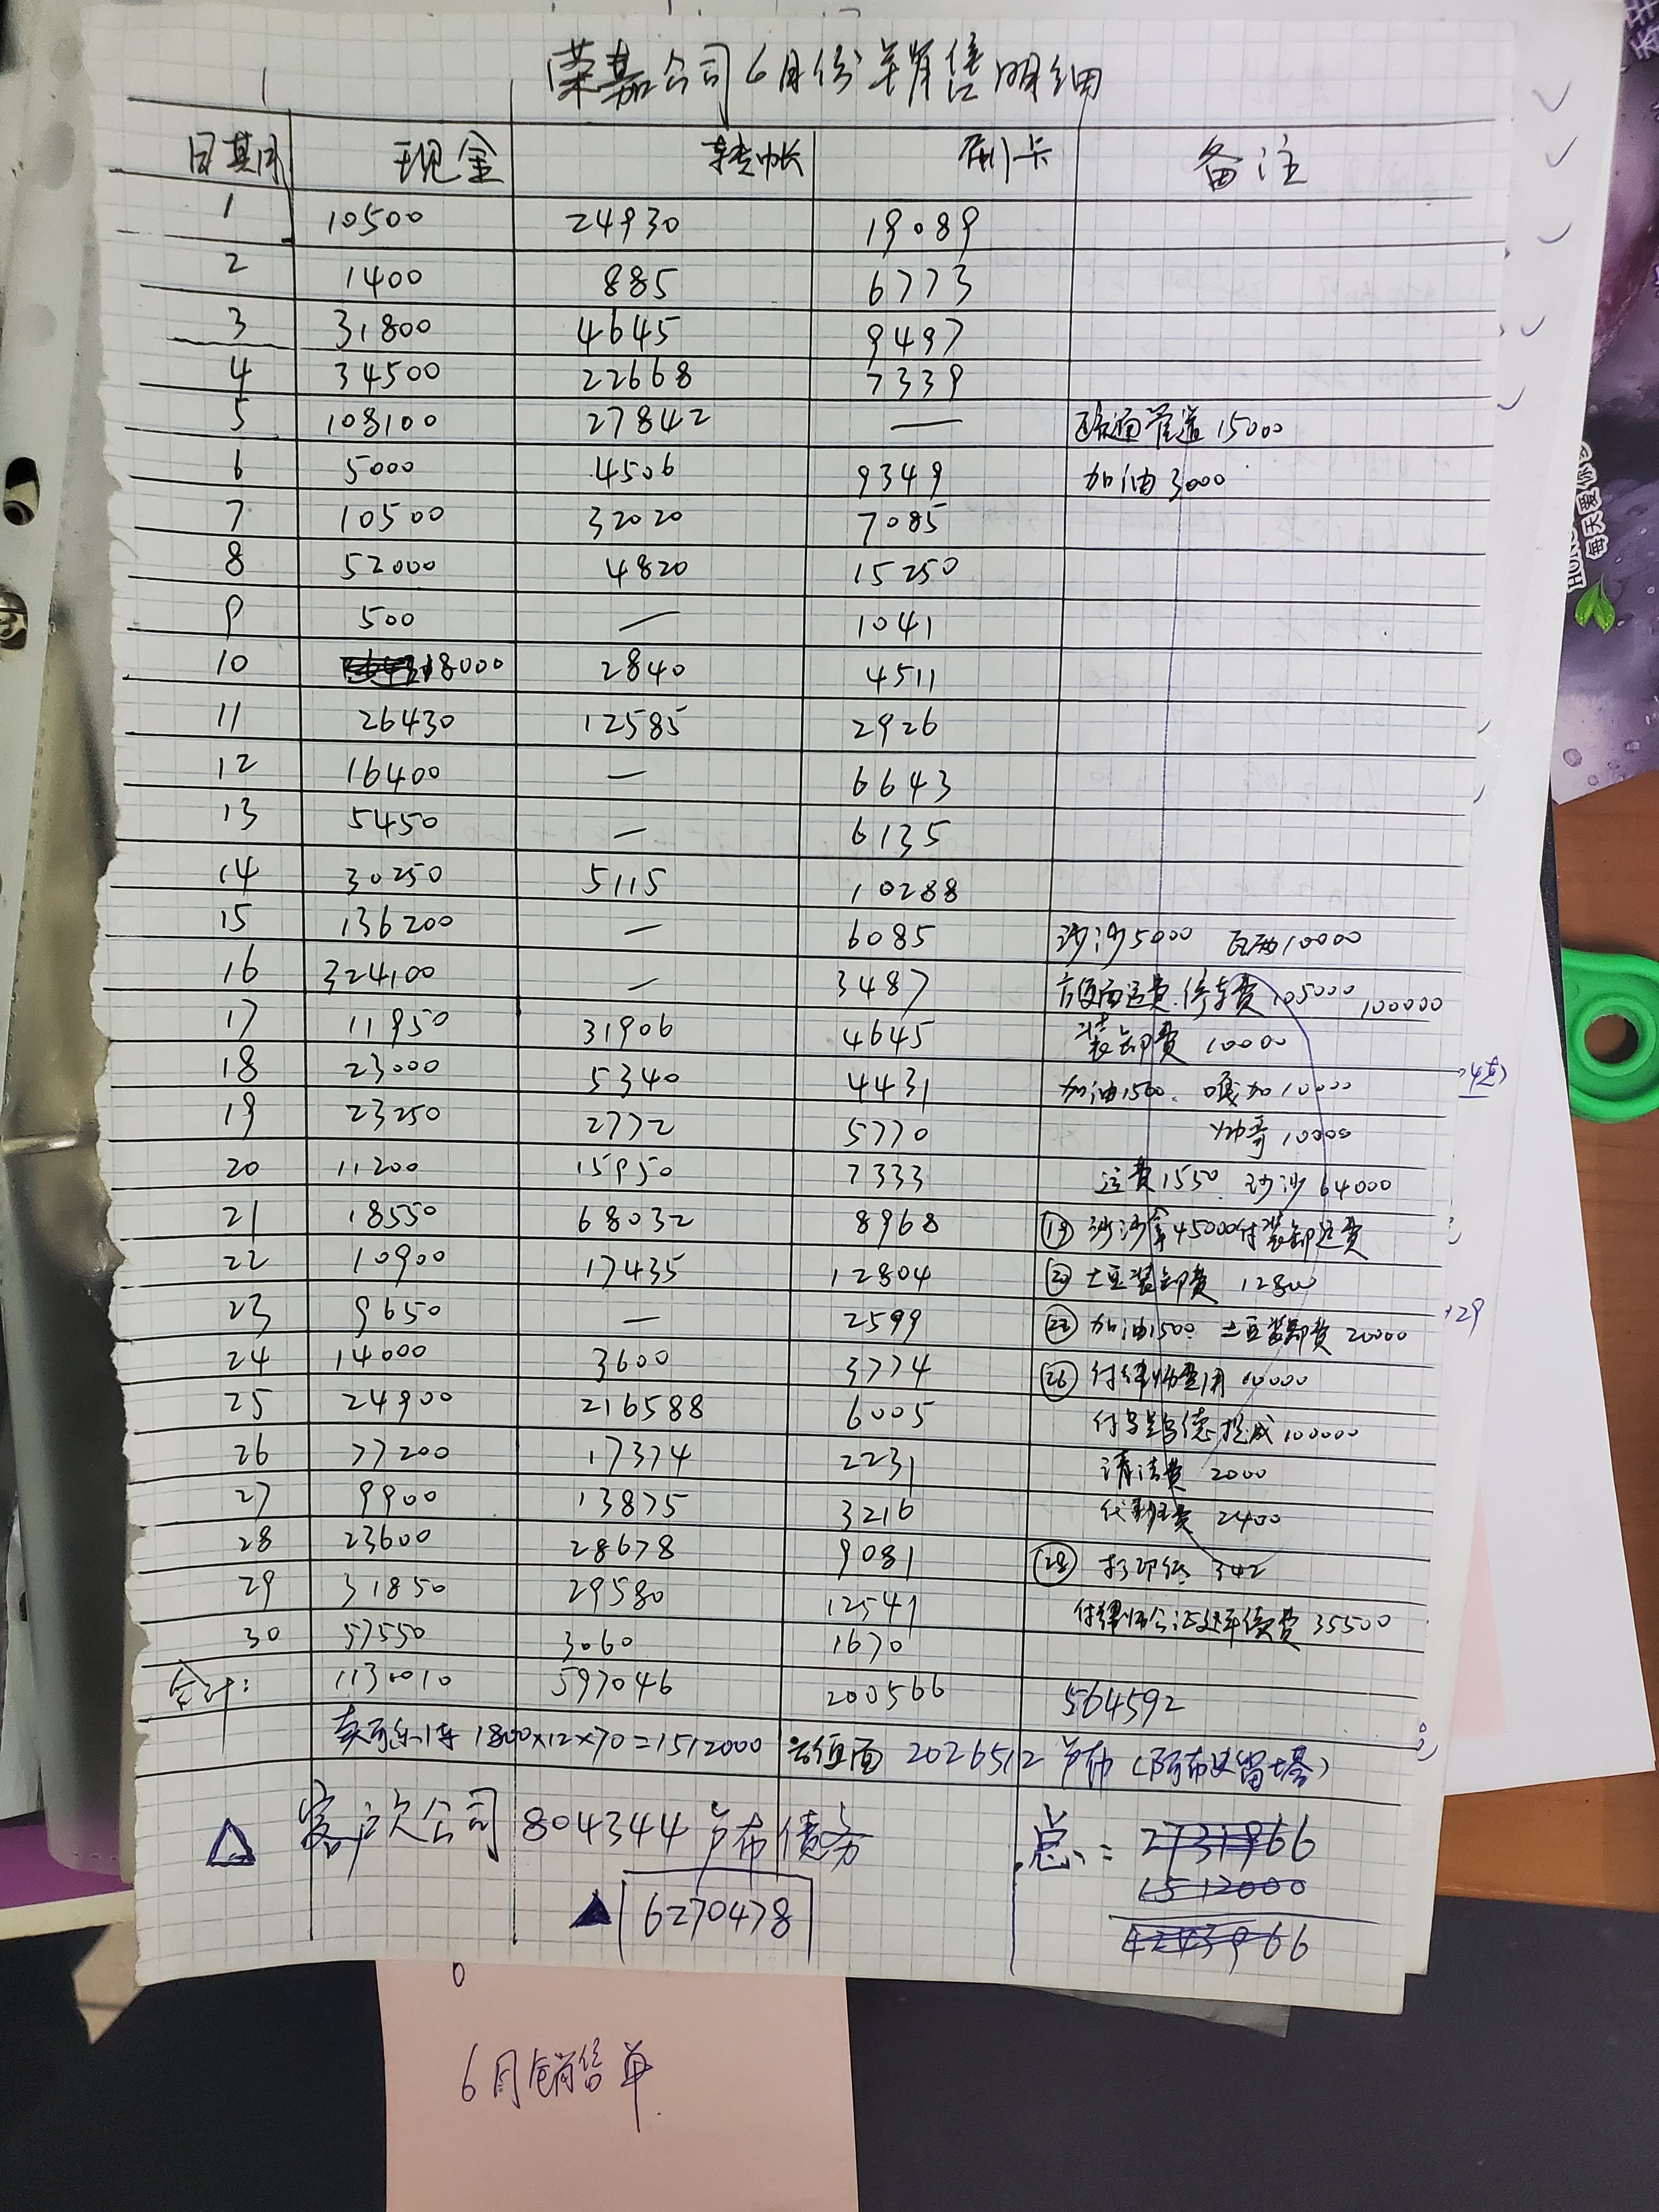 荣嘉公司6月份销售明细
日期 现金 转帐 刷卡 备注
1 10500 24930 19089
2 1400 885 6773
3 31800 4645 9497
4 34500 22668 7339
5 108100 27842 — 路面管道 15000
6 5000 4506 9349 加油 3000
7 10500 32020 7085
8 52000 4820 15250
9 500 — 1041
10 18000 2840 4511
11 26430 12585 2926
12 16400 — 6643
13 5450 — 6135
14 30250 5115 10288
15 136200 — 6085 沙沙5000 10000
16 324100 — 3487 方便面运费.停车费 105000 100000
17 11950 31906 4645 装卸费 10000
18 23000 5340 4431 加油1500. 嘎加10000
19 23250 2772 5770 10000
20 11200 15950 7333 运费1550. 沙沙64000
21 18550 68032 8968 ⑲ 沙沙拿45000付装卸运费
22 10900 17435 12804 ⑳ 土豆装卸费 12800
23 9650 — 2599 ㉒ 加油1500. 土豆装卸费 20000
24 14000 3600 3774 ㉖ 付律师费用 10000
25 24900 216588 6005 付 提成100000
26 77200 17374 2231 清洁费 2000
27 9900 13875 3216 代 费 2400
28 23600 28678 9081 ㉘ 打印纸 342
29 31850 29580 12541 付律师公证处手续费 35500
30 57550 3060 1670
合计: 1130010 597046 200566 564592
卖可乐1车 1800×12×70=1512000 方便面 2026512 卢布
客户欠公司804344卢布债务
总: 2731966
1512000
4243966
6270478
6月销售单
每天爱你
+29